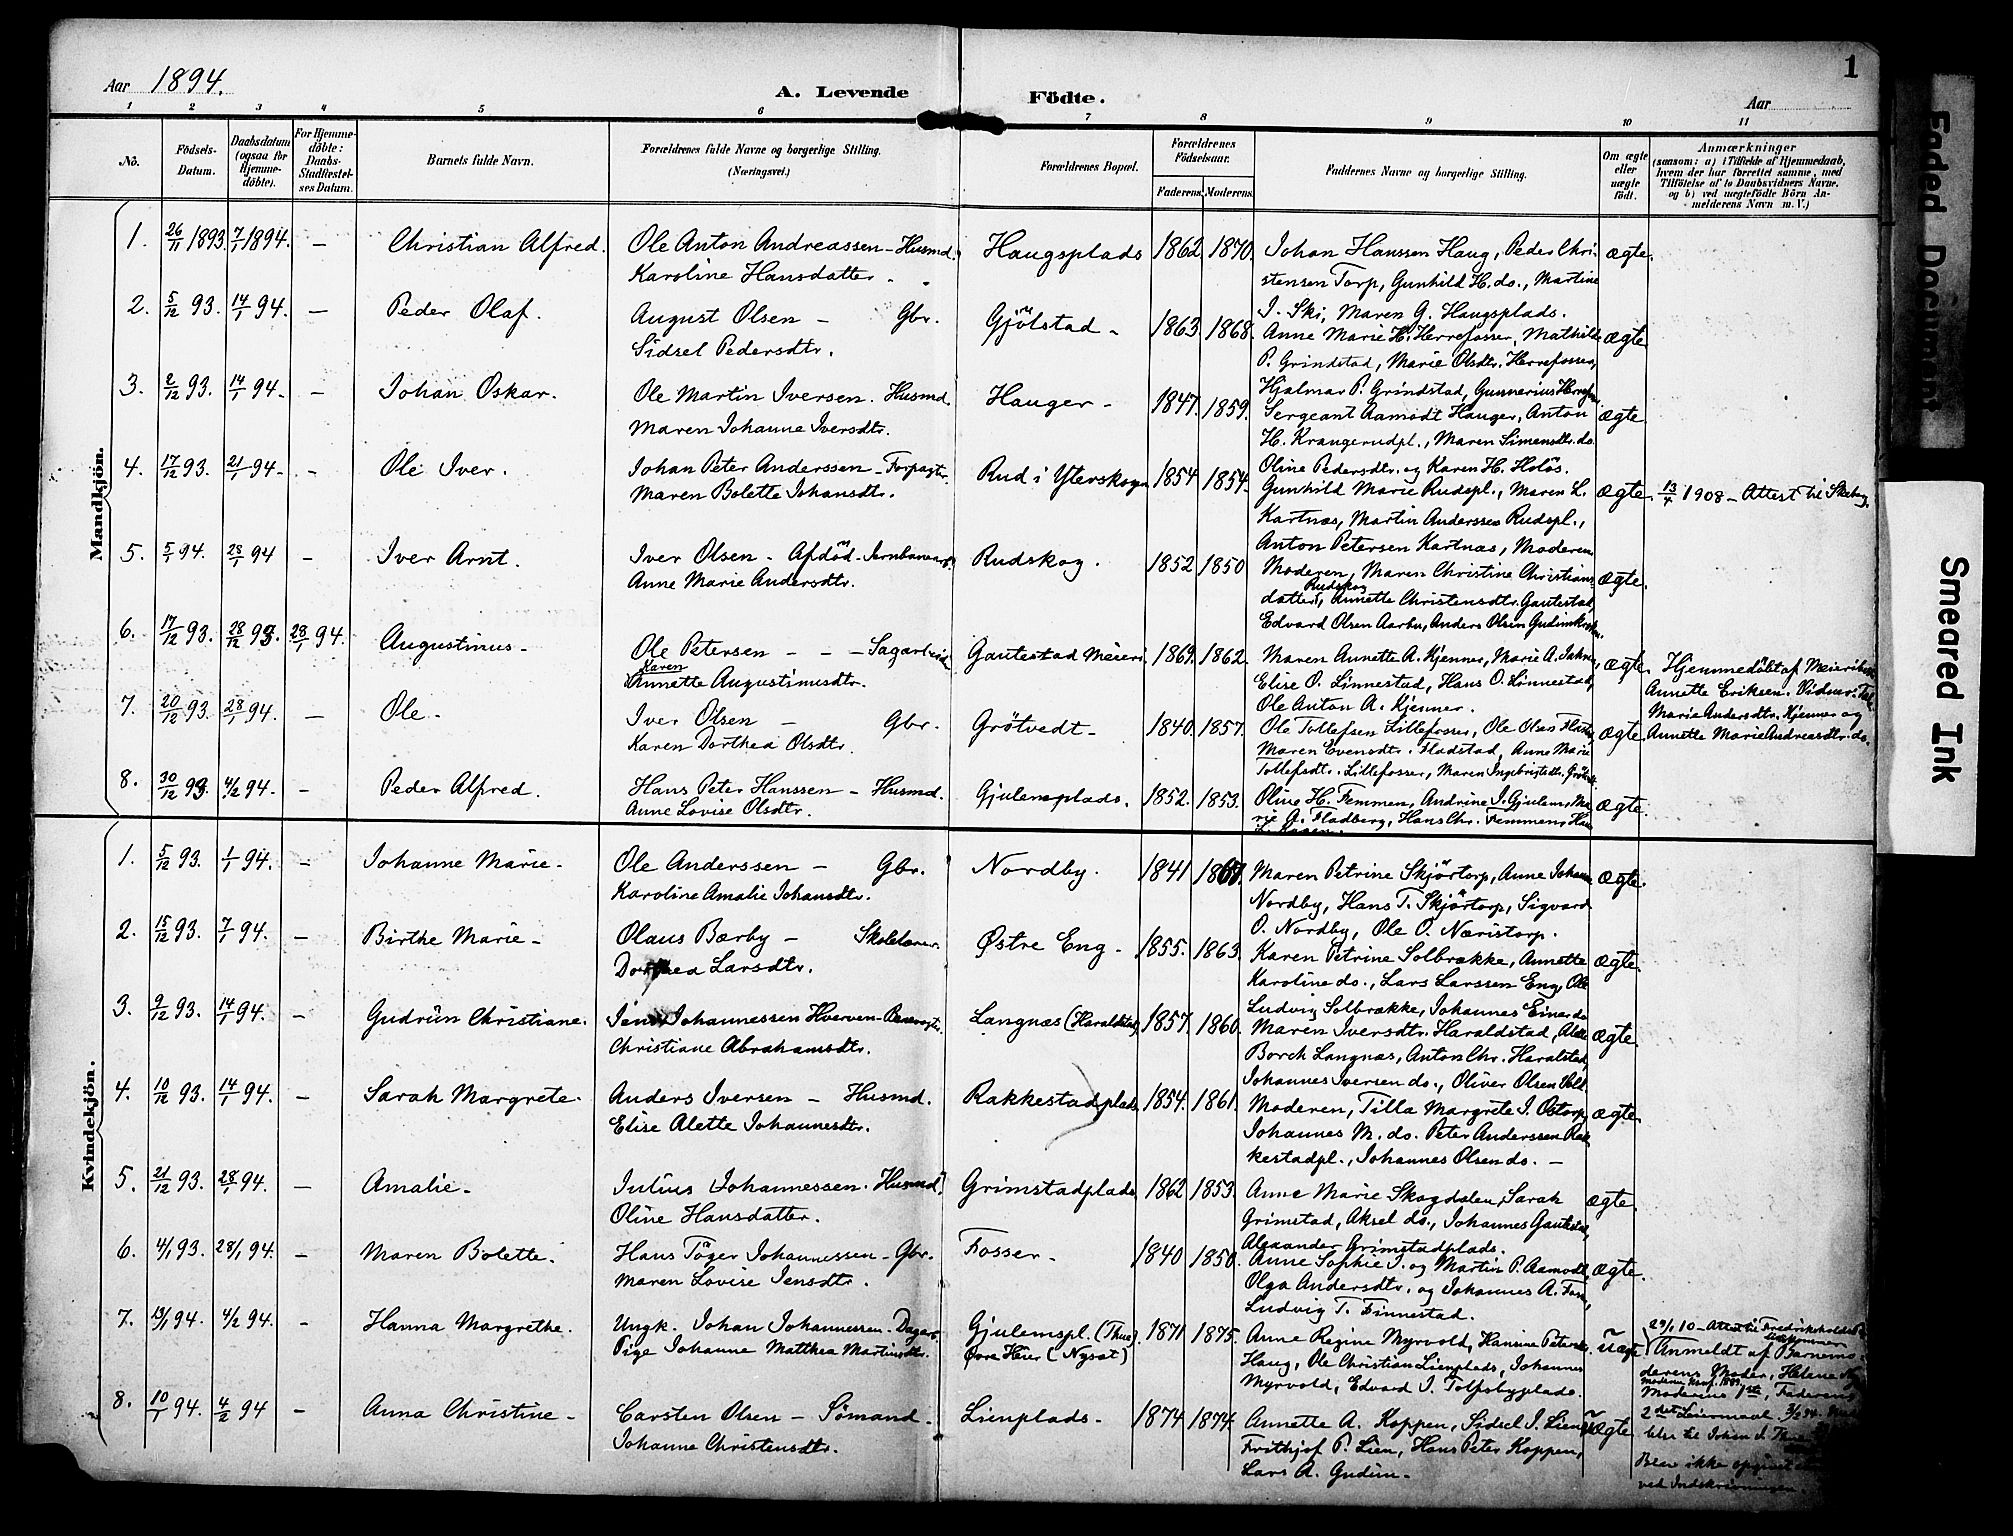 1
Aar 1894.
A. Levende Födte.
Aar
1 2 3 4 5 6 7 8 9 10 11
No.
Födsels-Datum.
Daabsdatum (ogsaa for Hjemme-döbte).
For Hjemme-döbte: Daabs-Stadfæstel-ses Datum.
Barnets fulde Navn.
Forældrenes fulde Navne og borgerlige Stilling. (Næringsvei.)
Forældrenes Bopæl.
Forældrenes Födselsaar.
Faderens. Moderens.
Faddernes Navne og borgerlige Stilling.
Om ægte eller uægte födt.
Anmærkninger
(saasom: a) i Tilfælde af Hjemmedaab, hvem der har forrettet samme, med Tilföielse af to Daabsvidners Navne, og b) ved uægtefödte Börn An-melderens Navn m. V.)
Mandkjön.
1. 26/11 1893. 7/1 1894. – Christian Alfred. Ole Anton Andreassen – Husmd. Haugsplads 1862 1870. Johan Hanssen Haug, Peder Chri- ægte.
Karoline Hansdatter. stensen Torp, Gunhild H. do., Martine
2. 5/12 93. 14/1 94. – Peder Olaf. August Olsen – Gbr. Gjölstad – 1863 1868. I. Ski, Maren G. Haugsplads.
Sidsel Pedersdtr. Anne Marie H. Herrefosser, Mathilde ægte
P. Grindstad, Marie Olsdtr. Herrefosser,
3. 2/12 93. 14/1 94. – Johan Oskar. Ole Martin Iversen. Husmd. Hauger – 1847. 1859. Hjalmar P. Grindstad, Gunnerius
Maren Johanne Iversdtr. Sergeant Aamodt Hauger, Anton ægte
H. Krangerudpl., Maren Simensdtr. do
4. 17/12 93. 21/1 94. – Ole Iver. Johan Peter Anderssen – Forpagtr. Rud i Yterskogen 1854 1854. Oline Pedersdtr. og Karen H. Holös.
Maren Bolette Johansdtr. Gunhild Marie Rudspl., Maren L. ægte. 13/4 1908 – Attest til
Kartnæs, Martin Anderssen Rudspl.,
5. 5/1 94. 28/1 94 – Iver Arnt. Iver Olsen – Afdöd – Rudskog. 1852 1850 Anton Petersen Kartnæs, Moderen
Anne Marie Andersdtr. Moderen, Maren Christine Christians- ægte.
Rudskog
datter, Annette Christensdtr. Gautestad,
6. 17/12 93. 28/12 93. 28/1 94. Augustinus – Ole Petersen – – – Gautestad Meieri 1869. 1862. Edvard Olsen Aarbu, Anders Olsen
Karen
Annette Augustinusdtr. Maren Annette A. Kjenner, Marie A. ægte. Hjemmedöbt af
Elise O. Linnestad, Hans O. Linnestad, Annette Eriksen.
7. 20/12 93. 28/1 94. – Ole. Iver Olsen – Gbr. Grötvedt – 1840. 1857. Ole Anton A. Kjenner. Marie Andersdtr. Kjenner og
Karen Dorthea Olsdtr. Ole Tollefsen Lillefosser, Ole Olsen ægte Annette Marie Andreasdtr. do.
Maren Evensdtr. Fladstad, Anne Marie
8. 30/12 93. 4/2 94. – Peder Alfred. Hans Peter Hanssen – Husmd. Gjulemsplads. 1852. 1853. Tollefsdtr. Lillefosser, Maren
Anne Lovise Olsdtr. Oline H. Femmen, Andrine J. Gjulem, Ma- ægte.
rie A. Fladberg, Hans Chr. Femmen, Hans
Kvindekjön.
1. 5/12 93. 1/1 94. – Johanne Marie – Ole Anderssen – Gbr. Nordby. 1841 Maren Petrine Skjörtorp, Anne Johanne ægte.
Karoline Amalie Johansdtr. Nordby, Hans T. Skjörtorp, Sigvard
2. 15/12 93. 7/1 94. – Birthe Marie – Olaus Bærby – Skolelærer. Østre Eng – 1855. 1863. O. Nordby, Ole O. Næristorp.
Dorthea Larsdtr. Karen Petrine Solbrække, Annette ægte.
Karoline do., Lars Larssen Eng, Ole
3. 9/12 93. 14/1 94. – Gudrun Christiane. Jens Johannessen Hverven – Langnæs (Haraldstad) 1857. 1860. Ludvig Solbrække, Johannes Einar do
Christiane Abrahamsdtr. Maren Iversdtr. Haraldstad, ægte.
Borch Langnæs, Anton Chr. Haralstad,
4. 10/12 93. 14/1 94. – Sarah Margrete. Anders Iversen – Husmd. Rakkestadplads 1854. 1861. Johannes Iversen do., Oliver Olsen
Elise Alette Johannesdtr. Moderen, Tilla Margrete J. Ostorp, ægte.
Johannes M. do. Peter Anderssen Rak-
kestadpl., Johannes Olsen do. –
5. 21/12 93. 28/1 94. – Amalie – Julius Johannessen. Husmd. Grimstadplads 1862 1853. Anne Marie Skogdalen, Sarah ægte.
Oline Hansdatter. Grimstad, Aksel do., Johannes
6. 4/1 93. 28/1 94. – Maren Bolette. Hans Töger Johannessen – Gbr. Fosser. 1840 1850. Alexander Grimstadplads.
Maren Lovise Jensdtr. Anne Sophie J. og Martin P. Aamodt, ægte.
Olga Andersdtr. og Johannes A.
Ludvig T. Finnestad.
7. 13/1 94. 4/2 94. – Hanna Margrethe. Ungk. Johan Johannessen. Gjulemspl. (Thue) 1871 1875. Anne Regine Myrvold, Hansine uægte 29/1 10 – Attest til
Pige Johanne Matthea Martinsdtr. Øvre Heier (Nysæt) Haug, Ole Christian Lienplads, Johannes Anmeldt af Barnemo-
Myrvold, Edvard J. Tolfsbyplads. derens Moder, Helene
Moderens 1ste, Faderens
8. 10/1 94. 4/2 94 – Anna Christine – Carsten Olsen – Sömand. Lienplads. – 1874 1874. Annette A. Koppen, Sidsel J. Lien ægte. 2det Leiermaal.
Johanne Christensdtr. Frithjof P. Lien, Hans Peter Koppen,
Lars A. Gudim. –
Blev ikke opgivet
ved Indskrivningen.
Faded Document
Smeared Ink